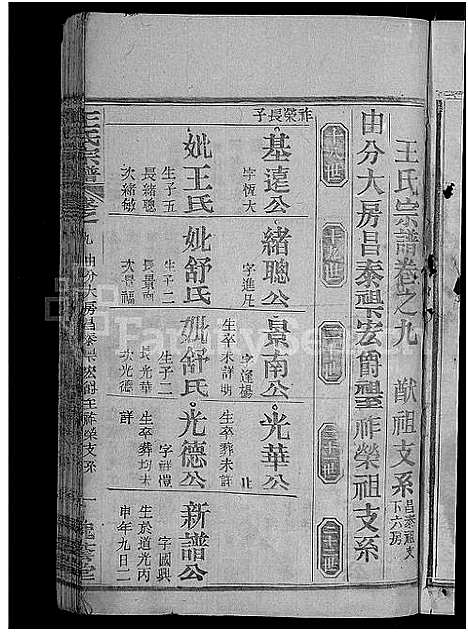 王氏宗譜卷之九 猷祖支系 昌泰祖支
下六房
由分大房昌泰與宏爵聖祚榮祖支系
十八世
十九世
二十世
二十一世
二十二世
祚榮長子
基遠公
字恆大
妣王氏
生子五
長緒聰
次緒敏
緒聰公
字進凡
妣舒氏
生子二
長景南
次景福
景南公
字逢楊
生卒未詳明
妣舒氏
生子二
長光華
次光德
光華公
生卒葬未詳
光德公
字祥
生卒葬均未
詳
新譜公
字國興
生於道光丙
申年九月二
王氏宗譜
卷之九
由分大房昌泰與宏爵王祚榮支系
一
FamilySearch